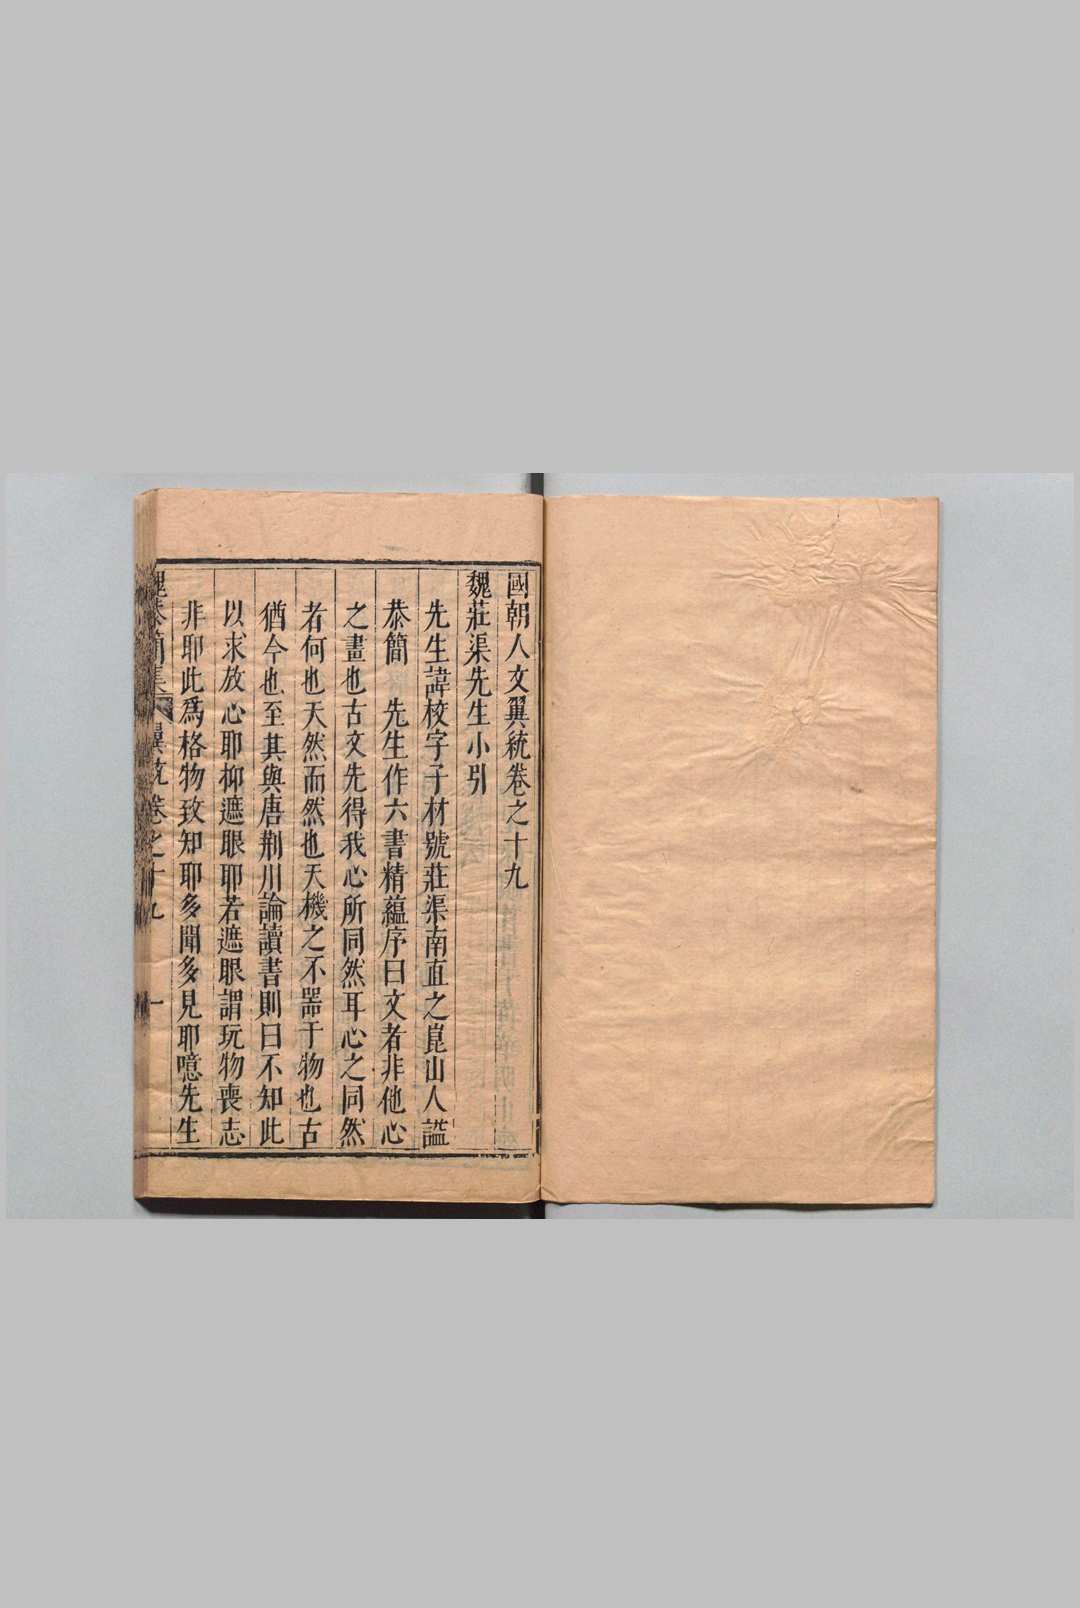 國朝人文翼統卷之十九
魏莊渠先生小引
先生諱校字子材號莊渠南直之崑山人謚
恭簡　先生作六書精蘊序曰文者非他心
之畫也古文先得我心所同然耳心之同然
者何也天然而然也天機之不器于物也古
猶今也至其與唐荆川論讀書則曰不知此
以求放心耶抑遮眼耶若遮眼謂玩物喪志
非耶此爲格物致知耶多聞多見耶噫先生
魏恭簡集　翼統卷之十九　一